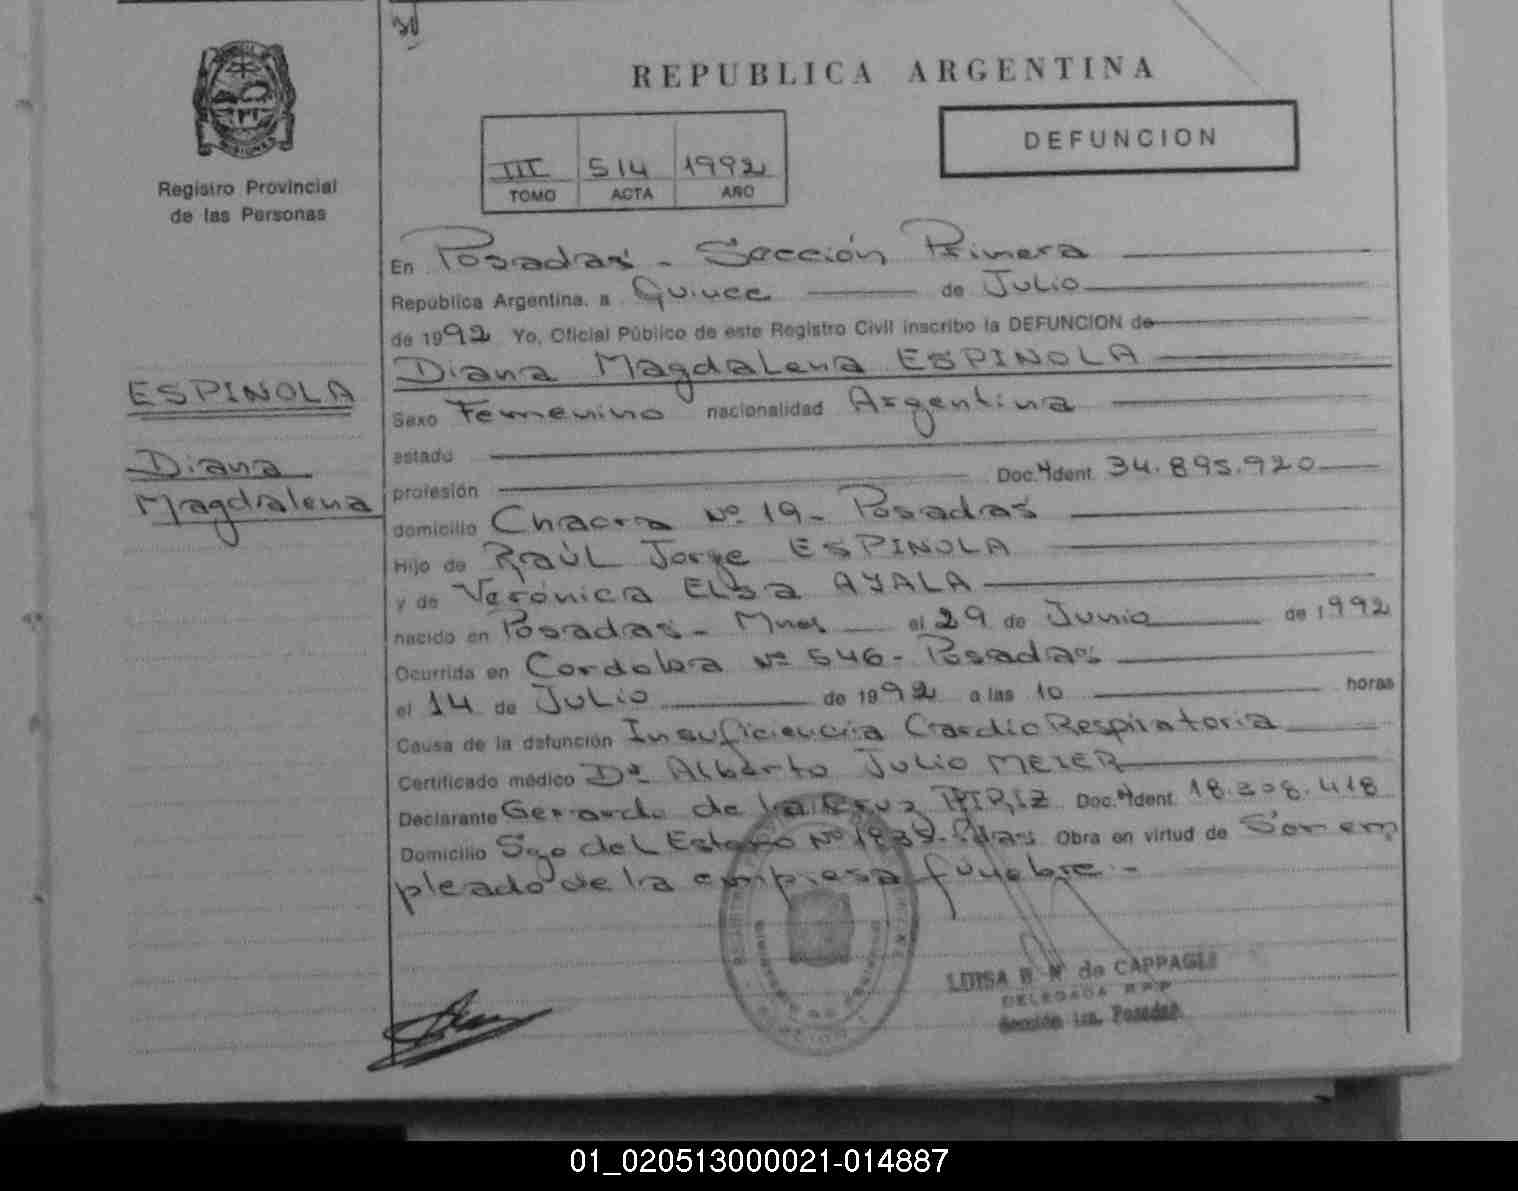 REPUBLICA ARGENTINA
MISIONES
Registro Provincial
de las Personas
III 514 1992
TOMO ACTA AÑO
DEFUNCION
En Posadas - Sección Primera
República Argentina, a Quince de Julio
de 1992 Yo, Oficial Público de este Registro Civil inscribo la DEFUNCION de
Diana Magdalena ESPINOLA
ESPINOLA
Diana
Magdalena
Sexo Femenino nacionalidad Argentina
estado
profesión Doc. Ident. 34.895.920
domicilio Chacra Nº 19- Posadas
Hijo de Raúl Jorge ESPINOLA
y de Verónica Elsa AYALA
nacido en Posadas - Mnes el 29 de Junio de 1992
Ocurrida en Cordoba Nº 546- Posadas
el 14 de Julio de 1992 a las 10 horas
Causa de la defunción Insuficiencia CardioRespiratoria
Certificado médico Dr Alberto Julio MEIER
Declarante Gerardo de la Cruz Doc. Ident. 18.308.418
Domicilio Sgo del Estero Nº Pdas. Obra en virtud de Ser em
pleado de la empresa fúnebre.-
LUISA de CAPPAGLI
DELEGADA R.P.P
Sección 1ra. Posadas
01_020513000021-014887